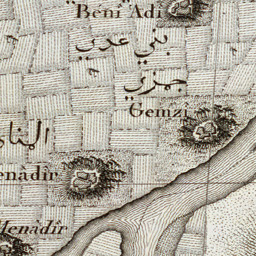 Beni A'di
بني عدي
جمزي
Gemzi
المنا
enâdir
Menâdir